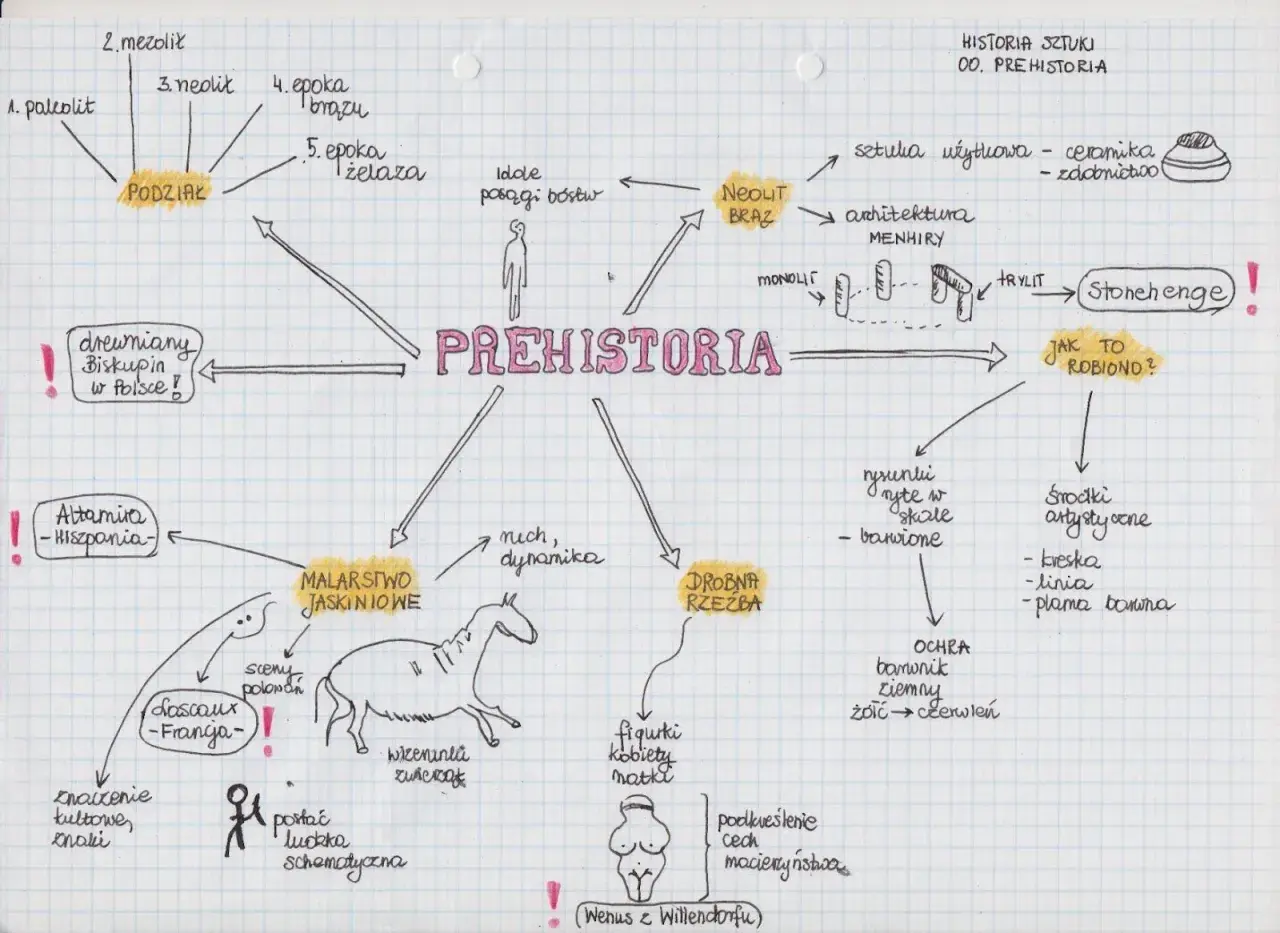 HISTORIA SZTUKI
00. PREHISTORIA
PREHISTORIA
PODZIAŁ
1. paleolit
2. mezolit
3. neolit
4. epoka
brązu
5. epoka
żelaza
NEOLIT
BRĄZ
Idole
posągi bóstw
sztuka użytkowa - ceramika
- zdobnictwo
architektura
MENHIRY
MONOLIT
TRYLIT
Stonehenge
!
JAK TO
ROBIONO?
rysunki
ryte w
skale
- barwione
OCHRA
barwnik
ziemny
żółć → czerwień
środki
artystyczne
- kreska
- linia
- plama barwna
DROBNA
RZEŹBA
figurki
kobiety
matki
podkreślenie
cech
macierzyństwa
!
(Wenus z Willendorfu)
MALARSTWO
JASKINIOWE
ruch,
dynamika
wizerunki
zwierząt
sceny
polowań
postać
ludzka
schematyczna
Lascaux
- Francja -
!
znaczenie
kultowe,
znaki
!
Altamira
- Hiszpania -
!
drewniany
Biskupin
w Polsce!